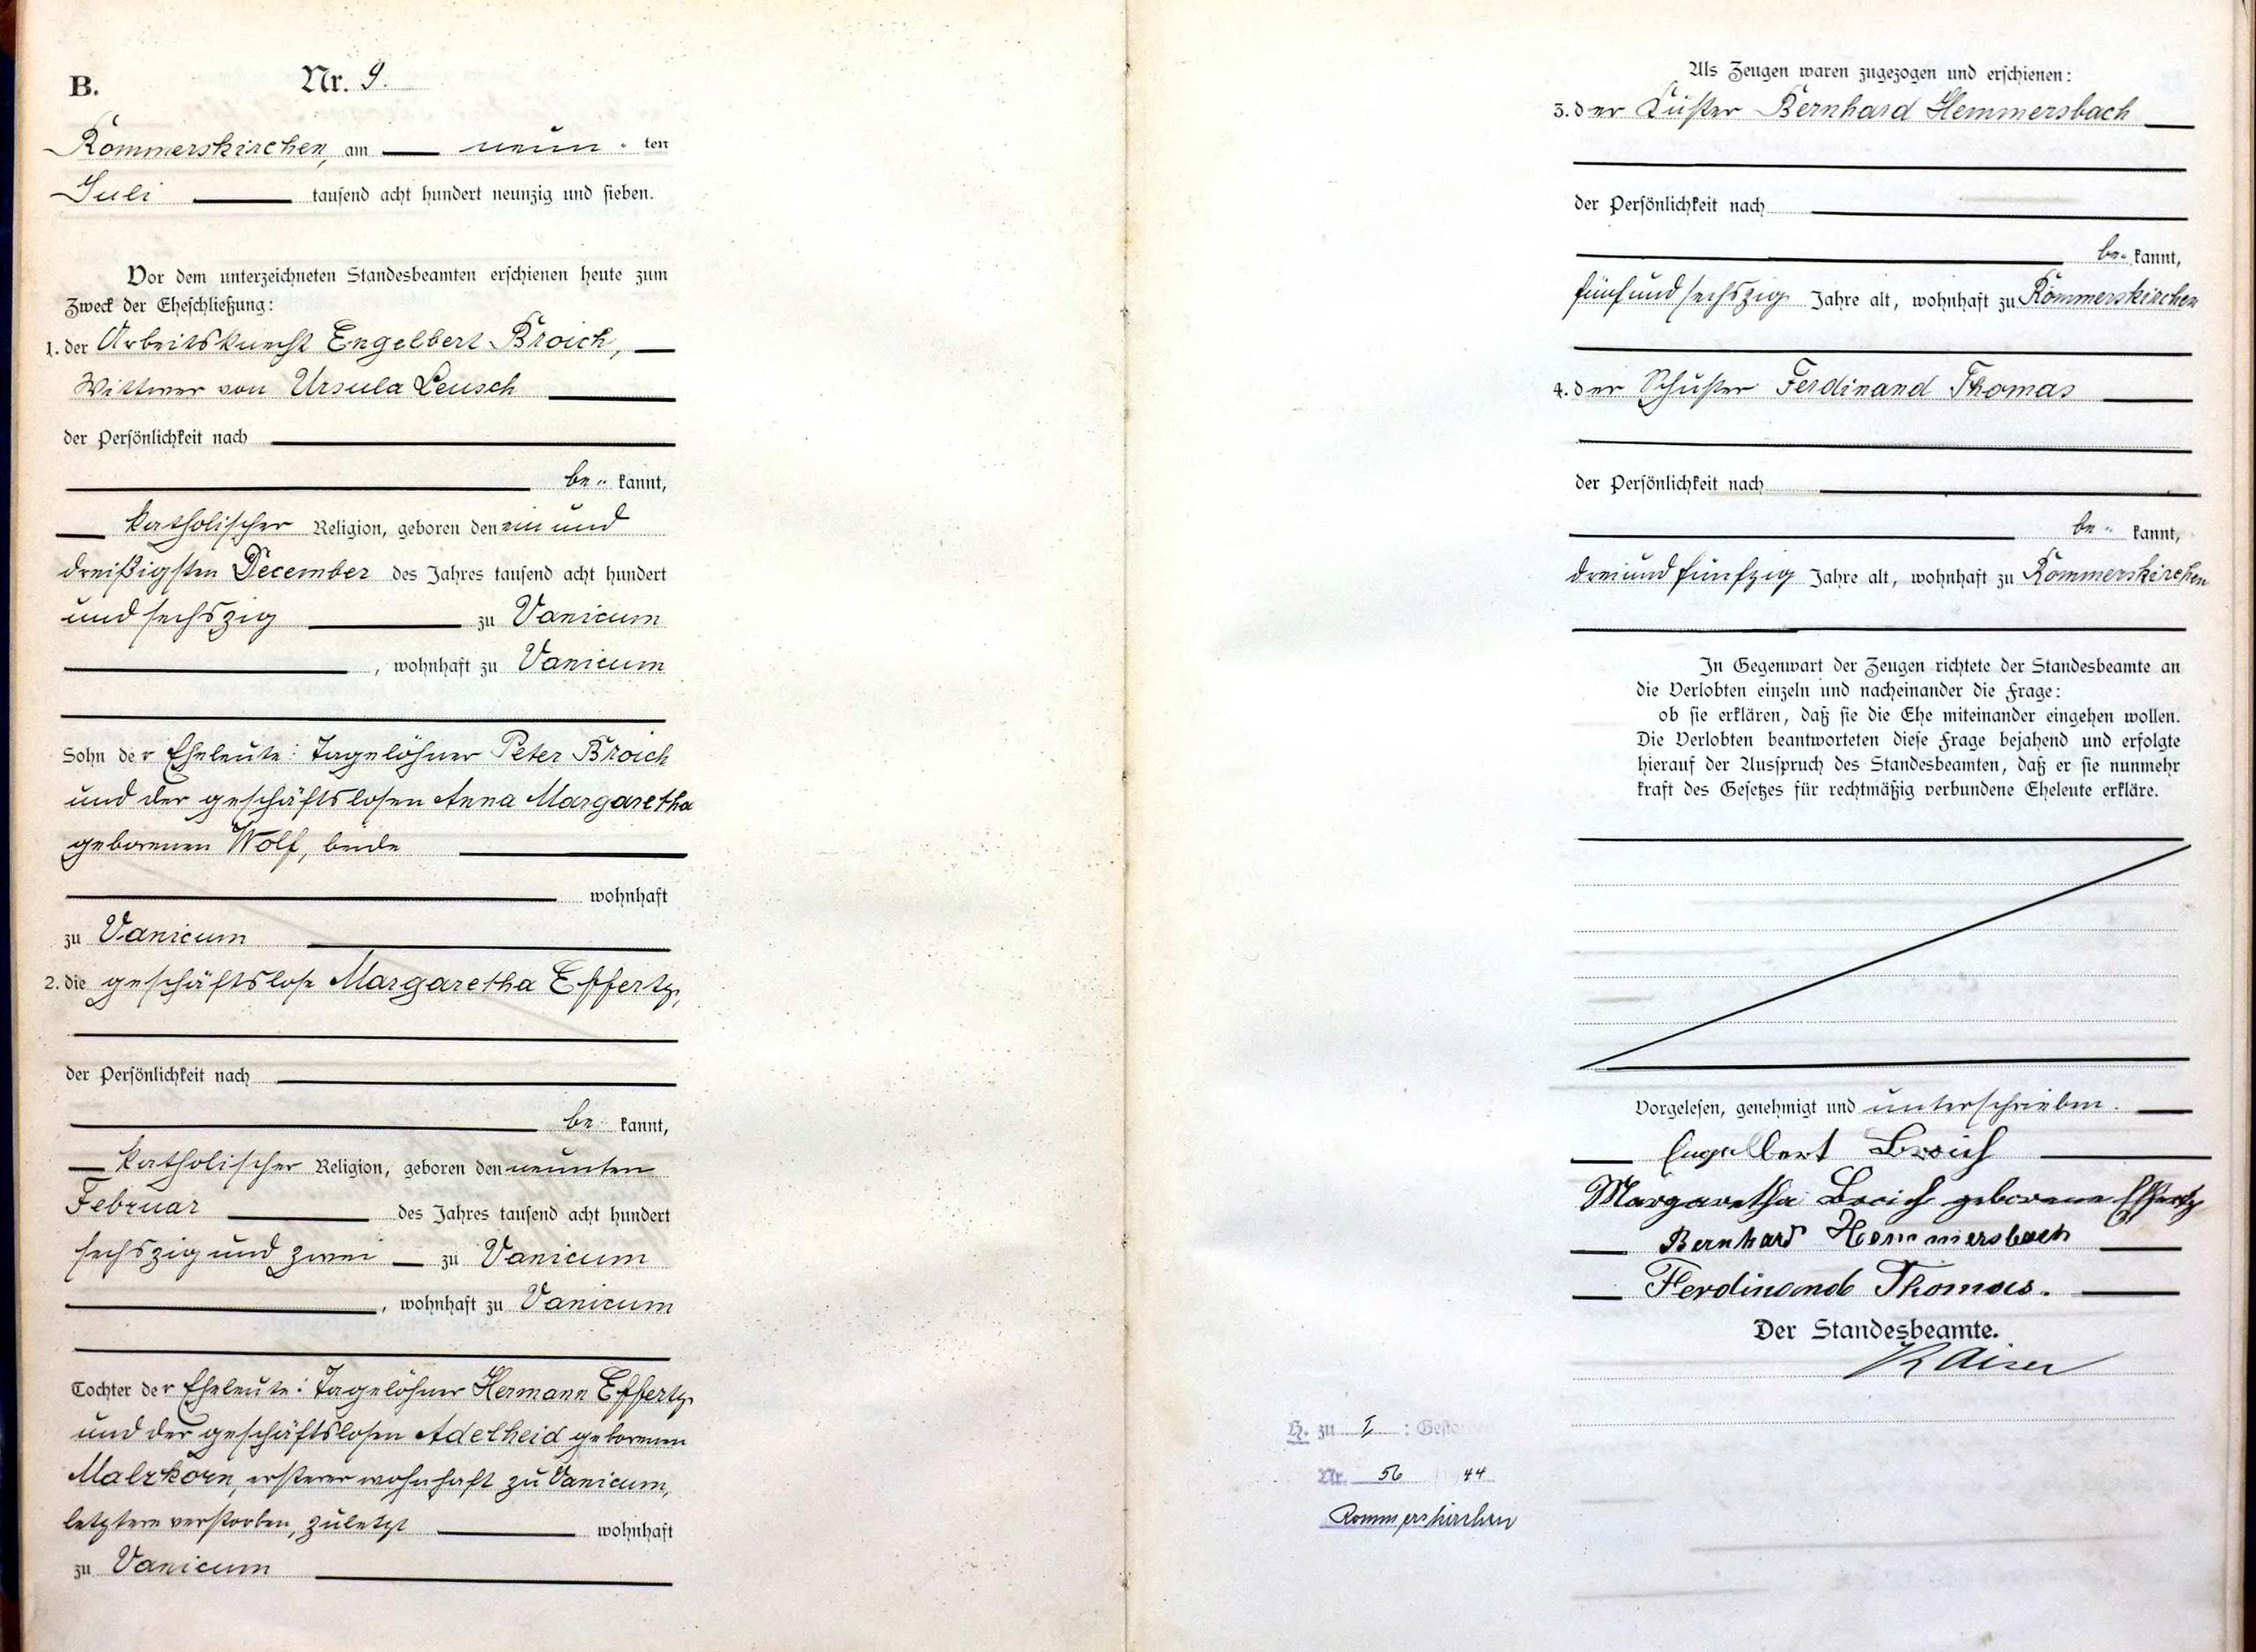 B. Nr. 9.
Rommerskirchen, am neun ten
Juli tausend acht hundert neunzig und sieben.
Vor dem unterzeichneten Standesbeamten erschienen heute zum
Zweck der Eheschließung:
1. der Arbeitsknecht Engelbert Broich,
Wittwer von Ursula Leusch
der Persönlichkeit nach
be- kannt,
katholischer Religion, geboren den ein und
dreißigsten December des Jahres tausend acht hundert
und sechszig zu Vanicum
, wohnhaft zu Vanicum
Sohn der Eheleute: Tagelöhner Peter Broich
und der geschäftslosen Anna Margaretha
geborenen Wolf, beide
wohnhaft
zu Vanicum
2. die geschäftslose Margaretha Effertz,
der Persönlichkeit nach
be- kannt,
katholischer Religion, geboren den neunten
Februar des Jahres tausend acht hundert
sechszig und zwei zu Vanicum
, wohnhaft zu Vanicum
Tochter der Eheleute: Tagelöhner Hermann Effertz
und der geschäftslosen Adelheid geborenen
Malzkorn, ersterer wohnhaft zu Vanicum,
letztere verstorben, zuletzt wohnhaft
zu Vanicum
Als Zeugen waren zugezogen und erschienen:
3. der Küster Bernhard Hemmersbach
der Persönlichkeit nach
be- kannt,
fünf und sechszig Jahre alt, wohnhaft zu Rommerskirchen
4. der Schuster Ferdinand Thomas
der Persönlichkeit nach
be- kannt,
drei und fünfzig Jahre alt, wohnhaft zu Rommerskirchen
In Gegenwart der Zeugen richtete der Standesbeamte an
die Verlobten einzeln und nacheinander die Frage:
ob sie erklären, daß sie die Ehe miteinander eingehen wollen.
Die Verlobten beantworteten diese Frage bejahend und erfolgte
hierauf der Ausspruch des Standesbeamten, daß er sie nunmehr
kraft des Gesetzes für rechtmäßig verbundene Eheleute erkläre.
Vorgelesen, genehmigt und unterschrieben.
Engelbert Broich
Margaretha Broich geborene Effertz
Bernhard Hemmersbach
Ferdinand Thomas.
Der Standesbeamte.
Kaiser
H. zu I : Gesto
Nr. 56 44
Rommerskirchen